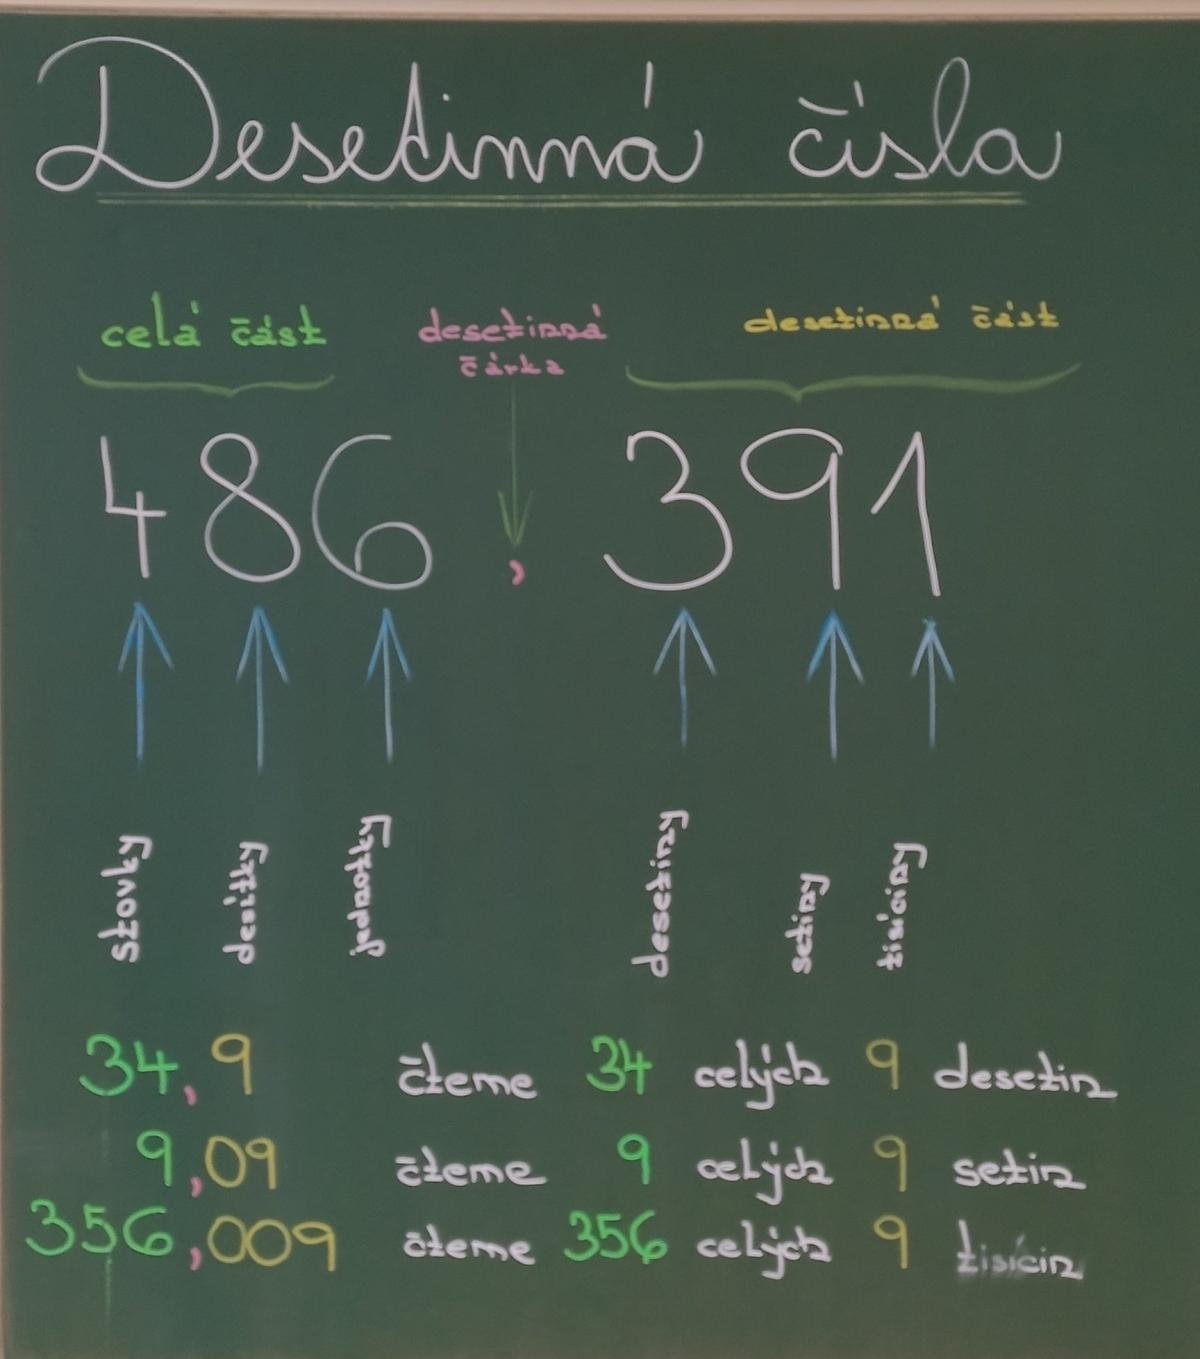 Desetinná čísla
celá část desetinná čárka desetinná část
486 , 391
stovky desítky jednotky desetiny setiny tisíciny
34,9 čteme 34 celých 9 desetin
9,09 čteme 9 celých 9 setin
356,009 čteme 356 celých 9 tisícin